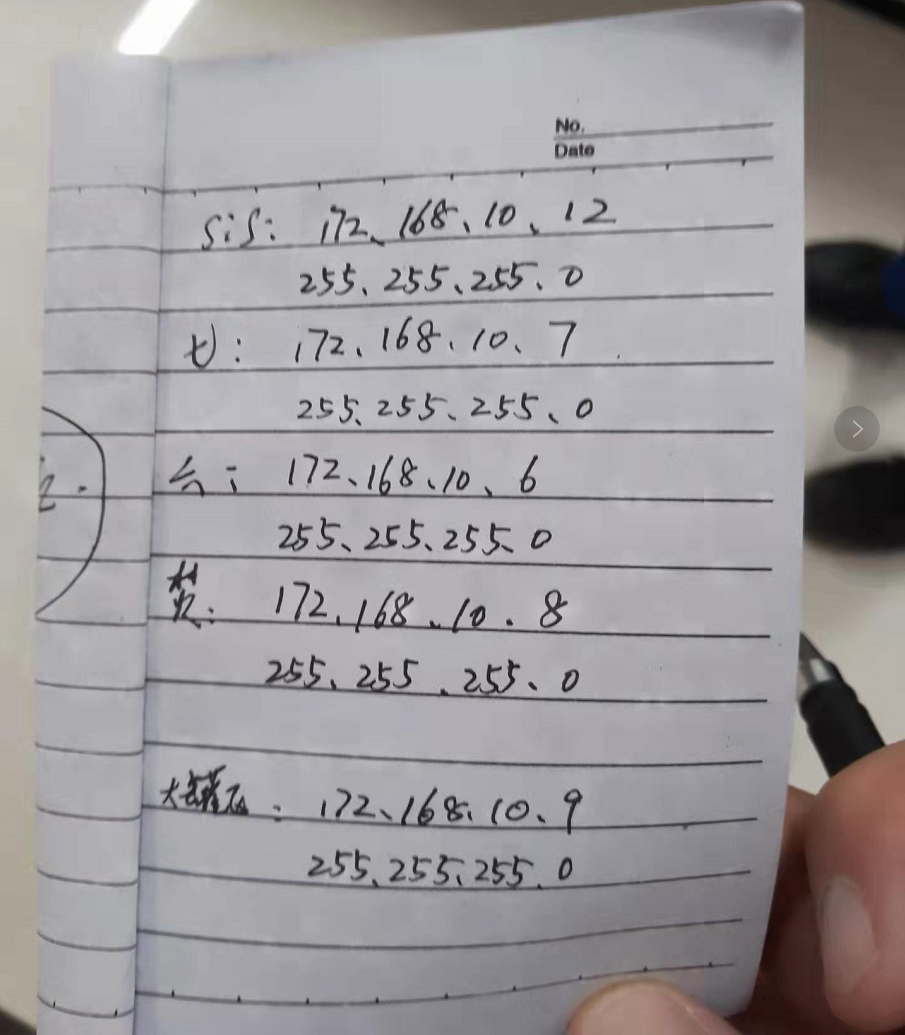 No.
Date
SiS: 172、168、10、12
255、255、255、0
: 172、168、10、7
255、255、255、0
: 172、168、10、6
255、255、255、0
: 172、168、10.8
255、255、255、0
大: 172、168、10、9
255、255、255、0
2.